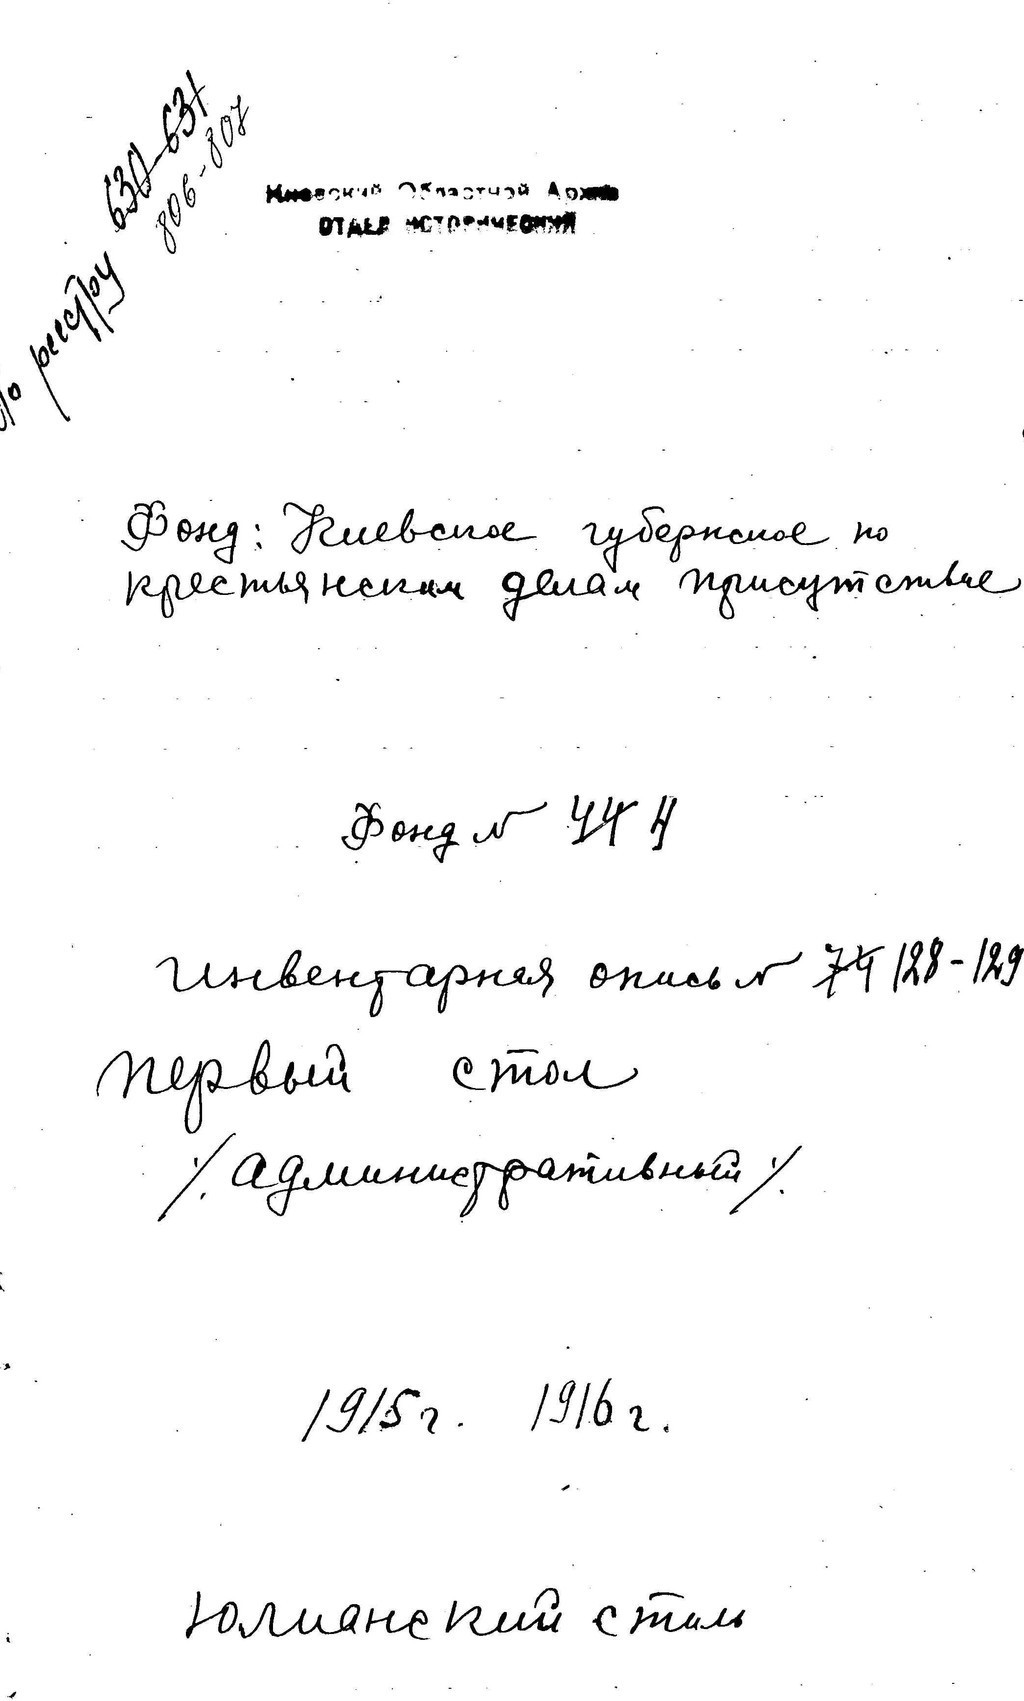 По реестру 630-631
806-807
Киевский Областной Архив
ОТДЕЛ ИСТОРИЧЕСКИЙ
Фонд: Киевское губернское по
крестьянским делам присутствие
Фонд № 444 4
Инвентарная опись № 74 128-129
Первый стол
/. Административный /.
1915 г. 1916 г.
Юлианский стиль